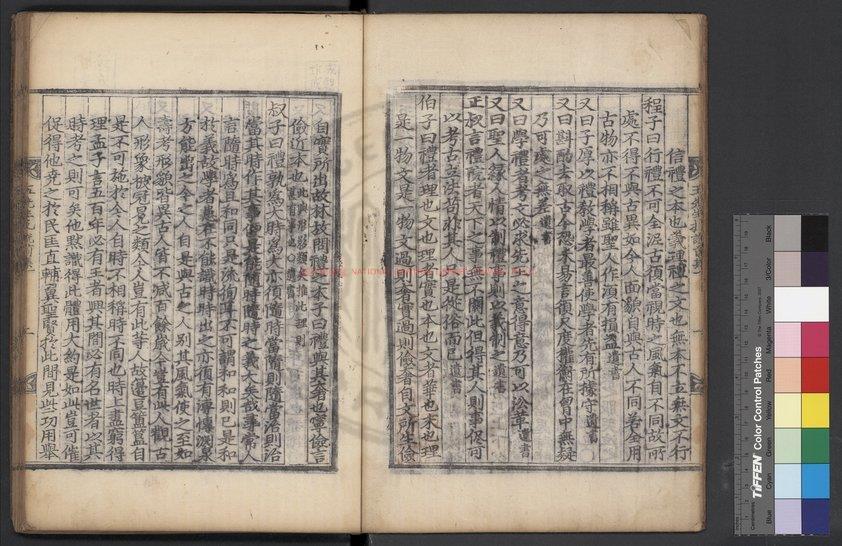 信禮之本也義理禮之文也無本不立無文不行
程子曰行禮不可全泥古須當視時之風氣自不同故所
處不得不與古異如今人面貌自與古人不同若全用
古物亦不相稱雖聖人作須有損益遺書
又曰子厚以禮教學者最善使學者先有所據守遺書
又曰斟酌去取古今恐未易言須尺度權衡在胸中無疑
乃可處之無差遺書
又曰學禮者考文必求先王之意得意乃可以沿革遺書
又曰聖人緣人情以制禮事則以義制之遺書
正叔言禮院者天下之事無不關此但得其人則事儘可
以考古立法苟非其人只是從俗而已遺書
伯子曰禮者理也文也理者實也本也文者華也末也理
是一物文是一物文過則奢實過則儉奢自文所生儉
自實所出故林放問禮之本子曰禮與其奢也寧儉言
儉近本也
叔子曰禮孰為大時為大亦須隨時當隨則隨當治則治
當其時作其事便是能隨時隨時之義大矣哉尋常人
言隨時為且和同只是流徇耳不可謂和和則已是和
於義故學者患在不能識時時出之亦須有溥博淵泉
方能出之今之人自是與古之人別其風氣使之至如
壽考形貌皆異古人皆不減百餘歲今豈有此人觀古
人形象被冠冕之類今人豈有此等人故籩豆簠簋自
是不可施於今人自時不相稱時不同也時上盡窮得
理孟子言五百年必有王者興其間必有名世者以其
時考之則可矣他默識得此體用大約是如此豈可催
促得他堯之於民匡直輔翼聖賢於此間見些功用舉
TIFFEN Color Control Patches
Blue
Cyan
Green
Yellow
Red
Magenta
White
3/Color
Black